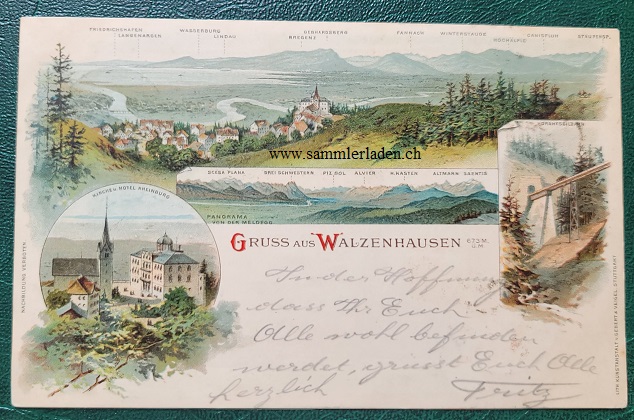 FRIEDRICHSHAFEN
LANGENARGEN
WASSERBURG
LINDAU
GEBHARDSBERG
BREGENZ
PFÄNDER
WINTERSTAUDE
HOCHÄLPLE
CANISFLUH
STAUFERSP.
www.sammlerladen.ch
SCESA PLANA DREI SCHWESTERN PIZ SOL ALVIER H. KASTEN ALTMANN SÄNTIS
PANORAMA
VON DER MELDEGG
KIRCHE U. HOTEL RHEINBURG
GRUSS AUS WALZENHAUSEN 673 M.
Ü. M.
In der Hoffnung
dass Ihr Euch
Alle wohl befinden
werdet, grüsst Euch Alle
herzlich Fritz
NACHBILDUNG VERBOTEN